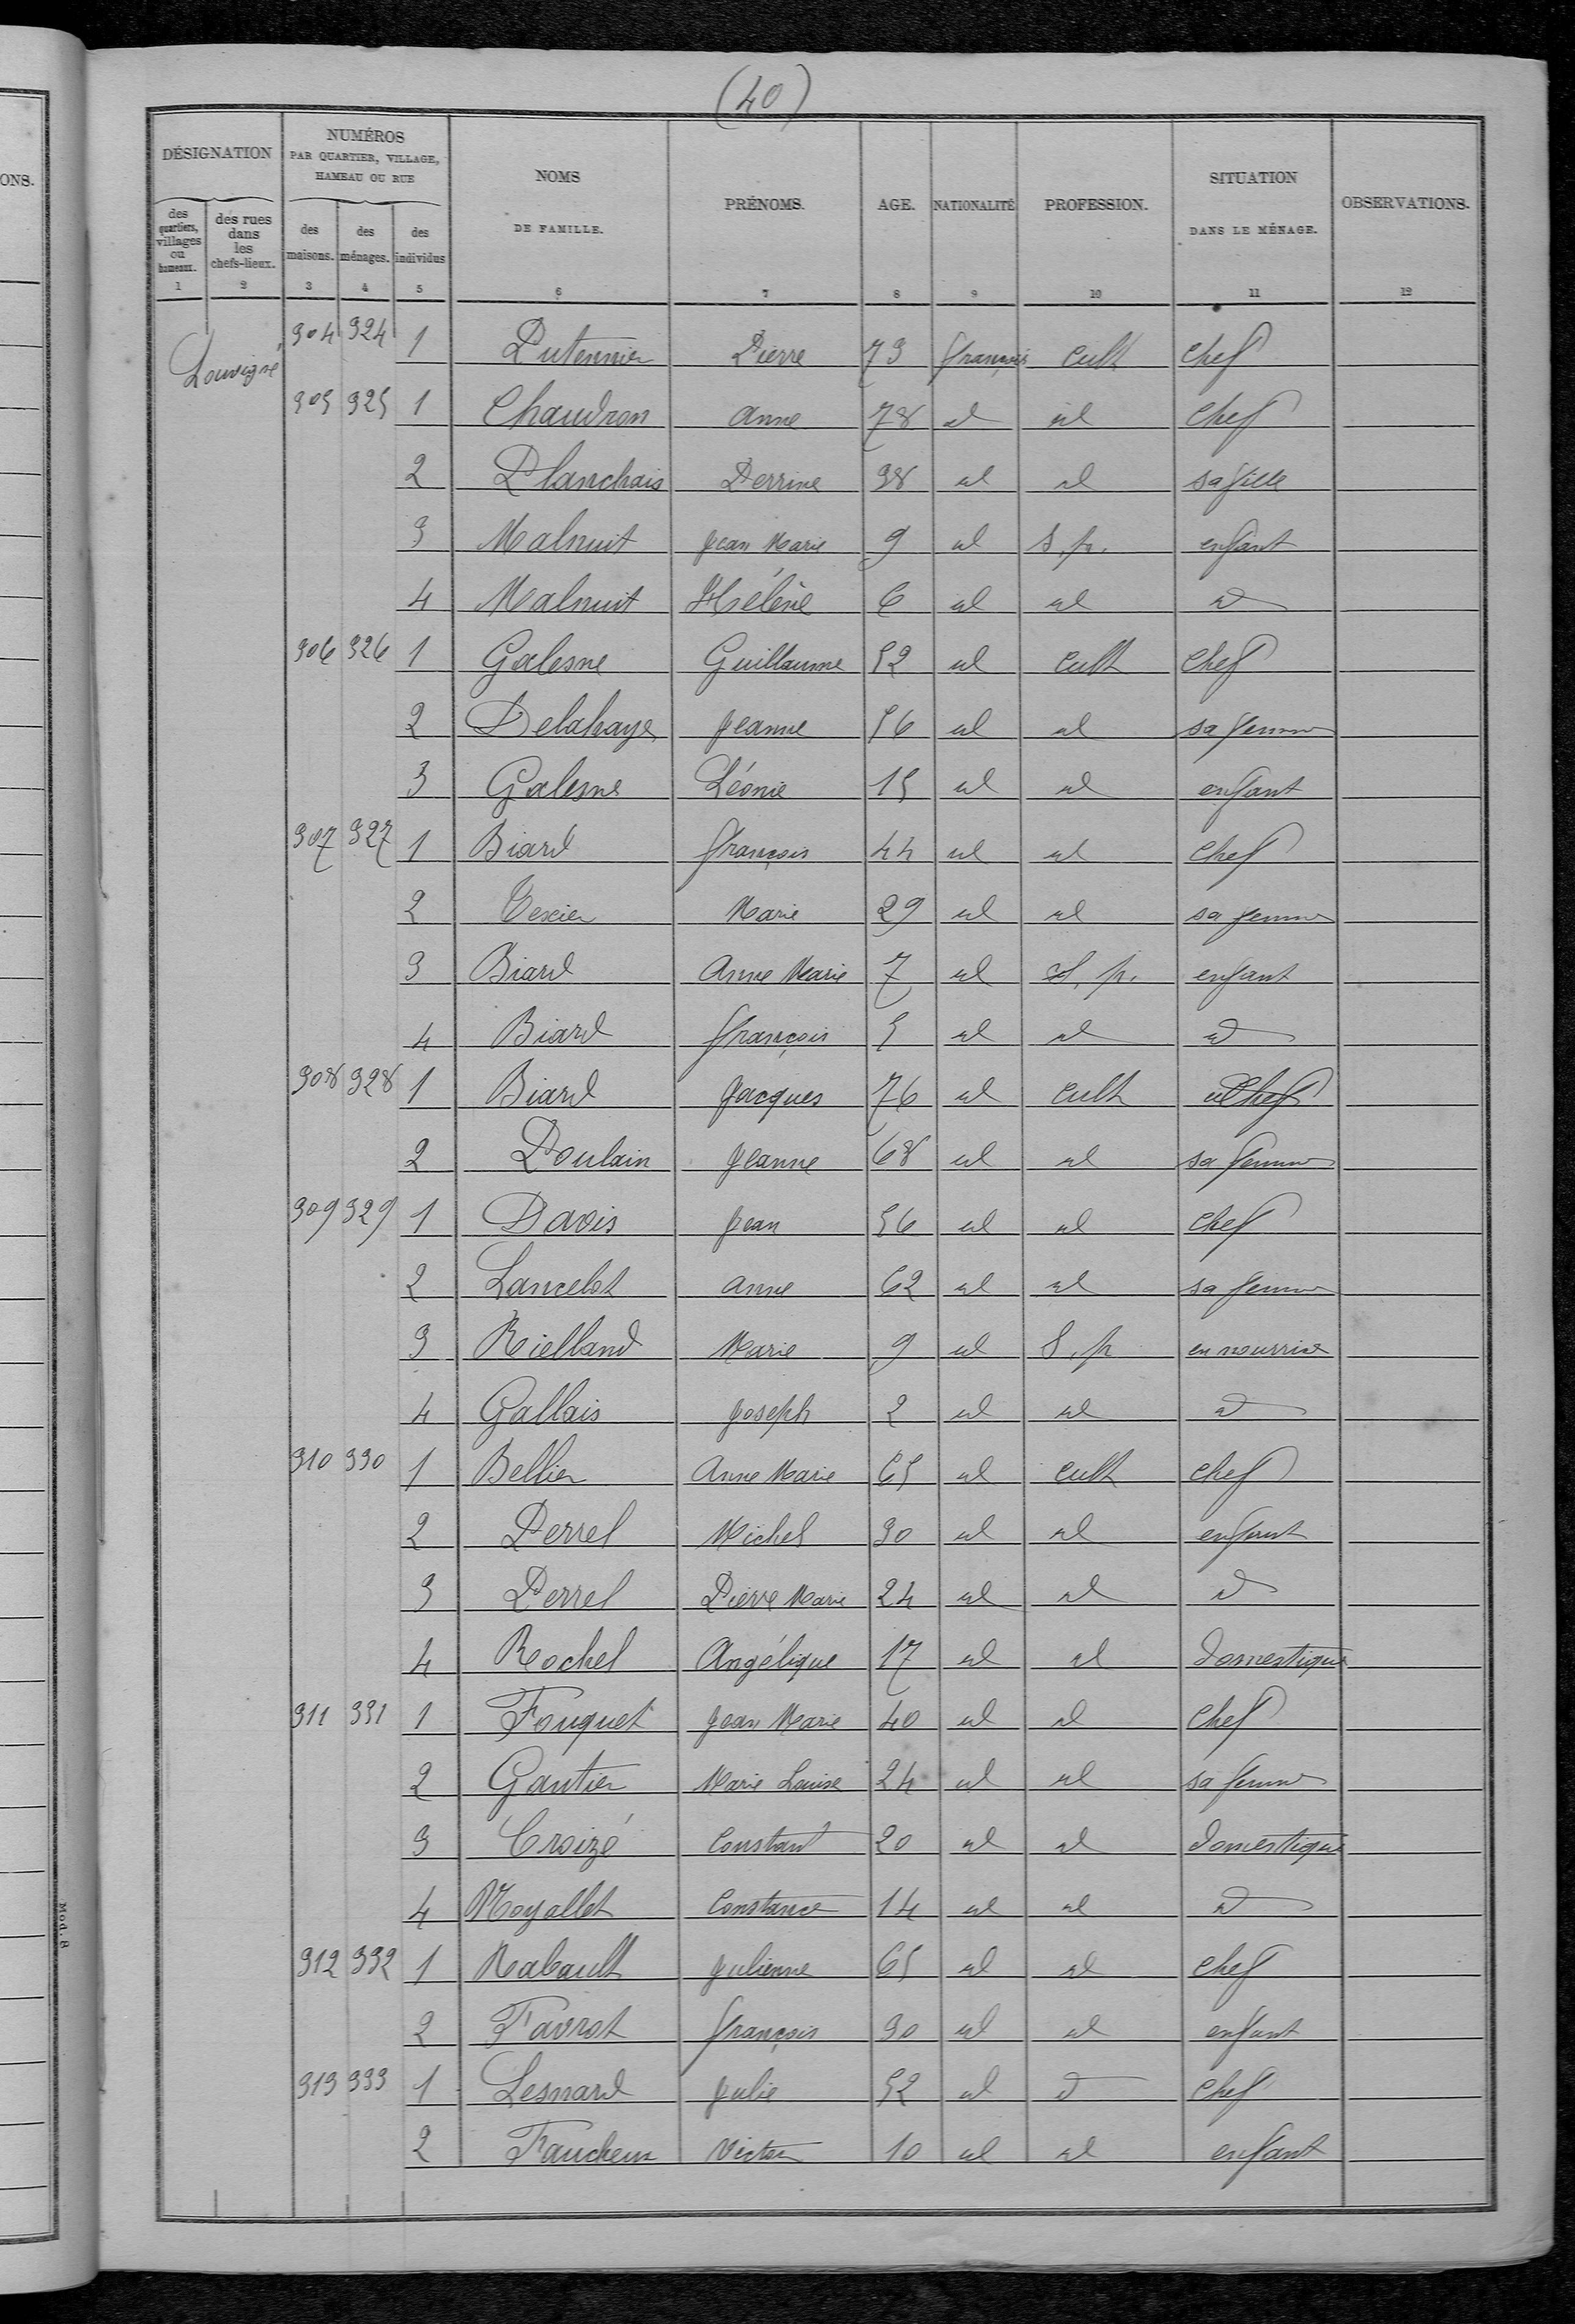 ONS.
(40)
DÉSIGNATION
NUMÉROS
PAR QUARTIER, VILLAGE,
HAMEAU OU RUE
NOMS
DE FAMILLE.
PRÉNOMS.
AGE.
NATIONALITÉ
PROFESSION.
SITUATION
DANS LE MÉNAGE.
OBSERVATIONS.
des quartiers, villages ou hameaux.
des rues dans les chefs-lieux.
des maisons.
des ménages.
des individus
1 2 3 4 5 6 7 8 9 10 11 12
Louvigné 304 324 1 Putennier Pierre 73 français cult chef
305 325 1 Chaudron Anne 78 id id chef
2 Planchais Perrine 38 id id sa fille
3 Malnuit Jean Marie 9 id S.p. enfant
4 Malnuit Hélène 6 id id id
306 326 1 Galesne Guillaume 52 id cult chef
2 Delahaye Jeanne 56 id id sa femme
3 Galesne Léonie 15 id id enfant
307 327 1 Biard François 44 id id chef
2 Texier Marie 29 id id sa femme
3 Biard Anne Marie 7 id S.p. enfant
4 Biard François 5 id id id
308 328 1 Biard Jacques 76 id cult chef
2 Poulain Jeanne 68 id id sa femme
309 329 1 Davis Jean 56 id id chef
2 Lancelot Anne 62 id id sa femme
3 Rielland Marie 9 id S.p en nourrice
4 Gallais Joseph 2 id id id
310 330 1 Bellier Anne Marie 65 id cult chef
2 Perrel Michel 30 id id enfant
3 Perrel Pierre Marie 24 id id id
4 Rochel Angélique 17 id id domestique
311 331 1 Fouquet Jean Marie 40 id id chef
2 Gautier Marie Louise 24 id id sa femme
3 Croizé Constant 20 id id domestique
4 Moyallet Constance 14 id id id
312 332 1 Rabault Julienne 65 id id chef
2 Favrot François 30 id id enfant
313 333 1 Lesnard Julie 52 id id chef
2 Faucheux Victor 10 id id enfant
Mod. 8